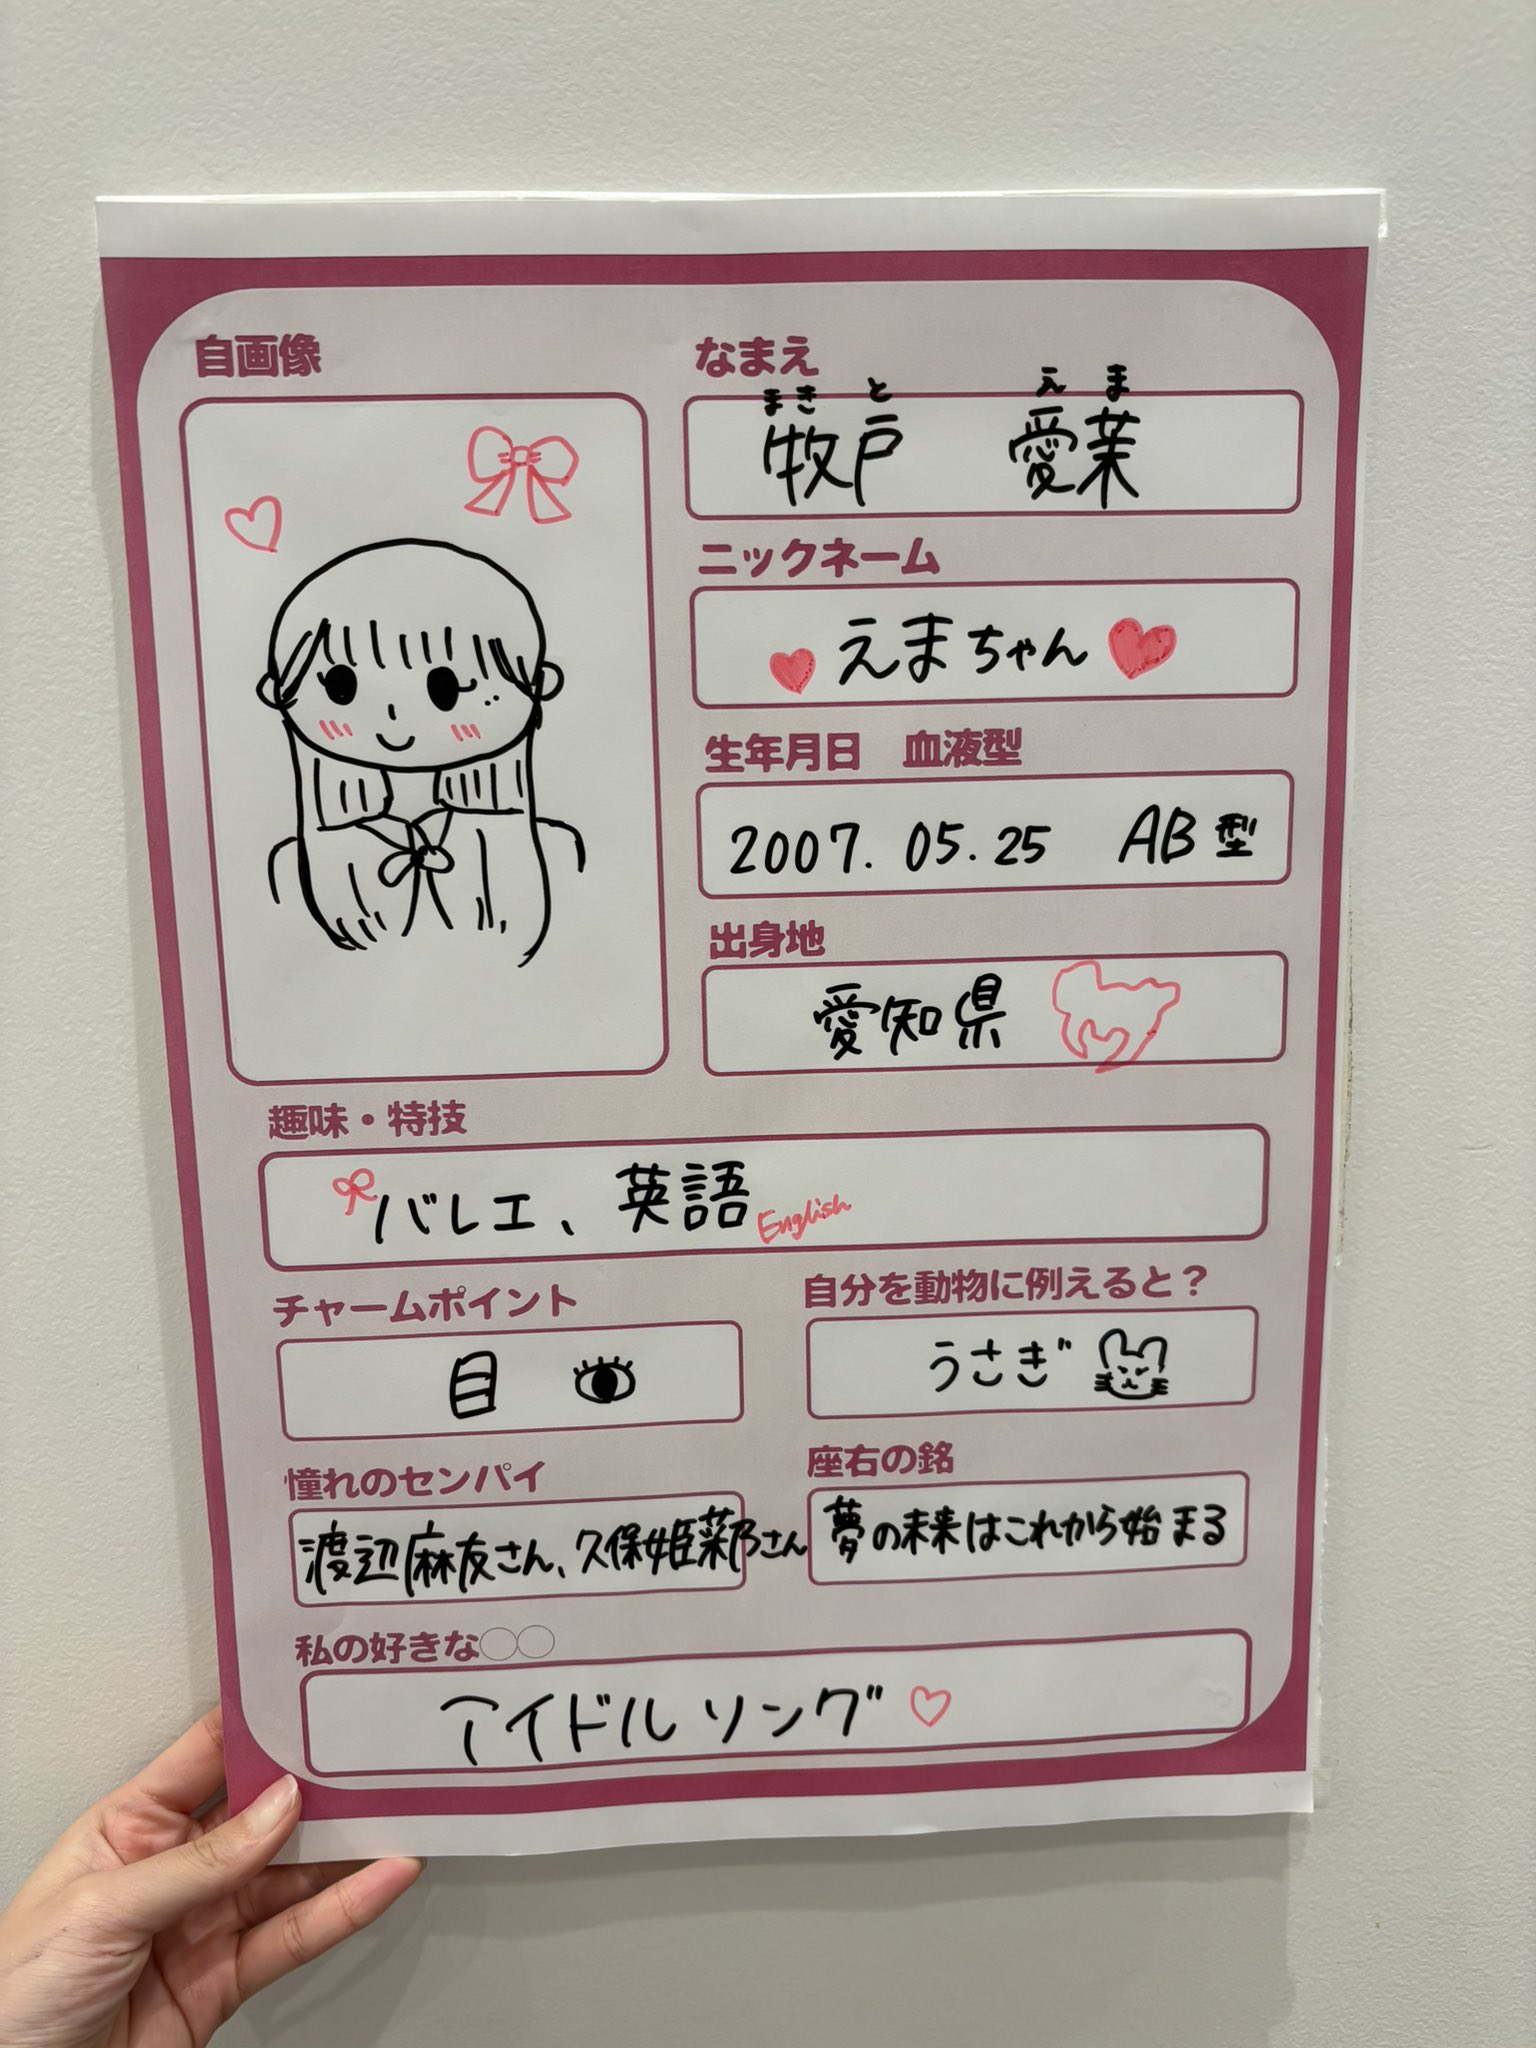 自画像
なまえ
まきと えま
牧戸 愛茉
ニックネーム
えまちゃん
生年月日 血液型
2007. 05. 25 AB型
出身地
愛知県
趣味・特技
バレエ、英語 English
チャームポイント
目
自分を動物に例えると？
うさぎ
憧れのセンパイ
渡辺麻友さん、久保姫菜乃さん
座右の銘
夢の未来はこれから始まる
私の好きな◯◯
アイドルソング